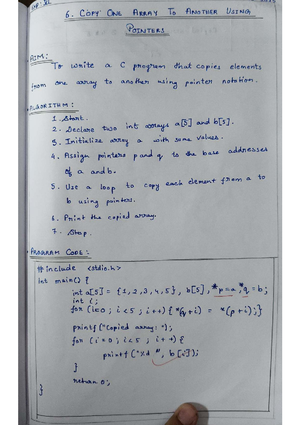 6. COPY ONE ARRAY TO ANOTHER USING
POINTERS
AIM:
To write a C program that copies elements
from one array to another using pointer notation.
ALGORITHM:
1. Start.
2. Declare two int arrays a[5] and b[5].
3. Initialize array a with some values.
4. Assign pointers p and q to the base addresses
of a and b.
5. Use a loop to copy each element from a to
b using pointers.
6. Print the copied array.
7. Stop.
PROGRAM CODE:
#include <stdio.h>
int main() {
int a[5] = {1,2,3,4,5}, b[5], *p=a, *q=b;
int i;
for (i=0; i<5; i++) { *(q+i) = *(p+i); }
printf("Copied array: ");
for (i=0; i<5; i++) {
printf("%d ", b[i]);
}
return 0;
}